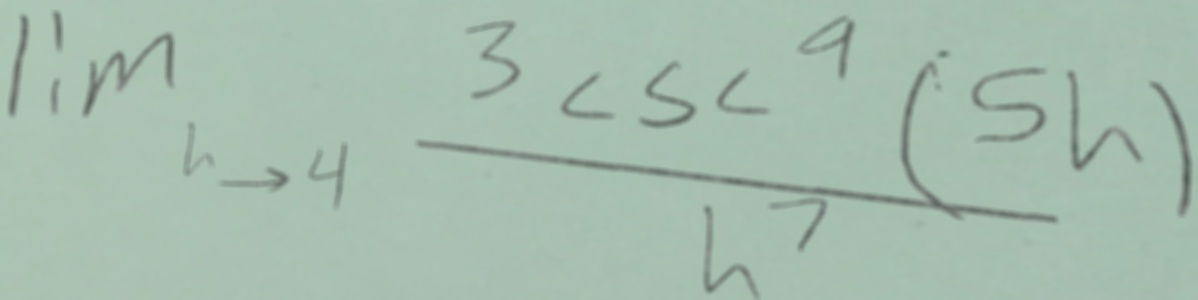 \lim_{h \to 4} \frac{3 \csc^9 (5h)}{h^7}